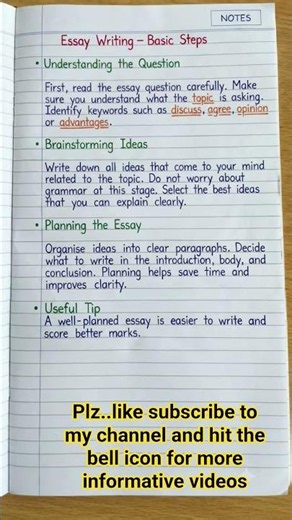 NOTES
Essay Writing – Basic Steps
• Understanding the Question
First, read the essay question carefully. Make
sure you understand what the topic is asking.
Identify keywords such as discuss, agree, opinion
or advantages.
• Brainstorming Ideas
Write down all ideas that come to your mind
related to the topic. Do not worry about
grammar at this stage. Select the best ideas
that you can explain clearly.
• Planning the Essay
Organise ideas into clear paragraphs. Decide
what to write in the introduction, body, and
conclusion. Planning helps save time and
improves clarity.
• Useful Tip
A well-planned essay is easier to write and
score better marks.
Plz..like subscribe to
my channel and hit the
bell icon for more
informative videos